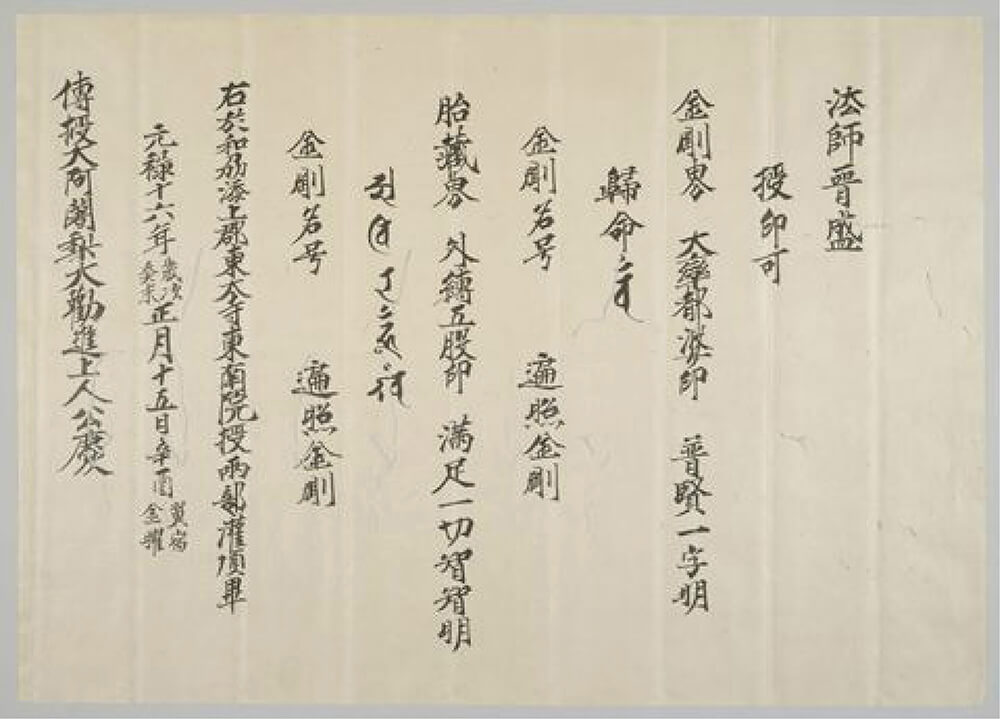 法師晋盛
授印可
金剛界 大率都婆印 普賢一字明
歸命
金剛名号 遍照金剛
胎蔵界 外縛五股印 満足一切智智明
金剛名号 遍照金剛
右於和州添上郡東大寺東南院授両部灌頂畢
元禄十六年歳次癸未正月十五日辛酉翼宿金曜
傳授大阿闍梨大勧進上人公慶